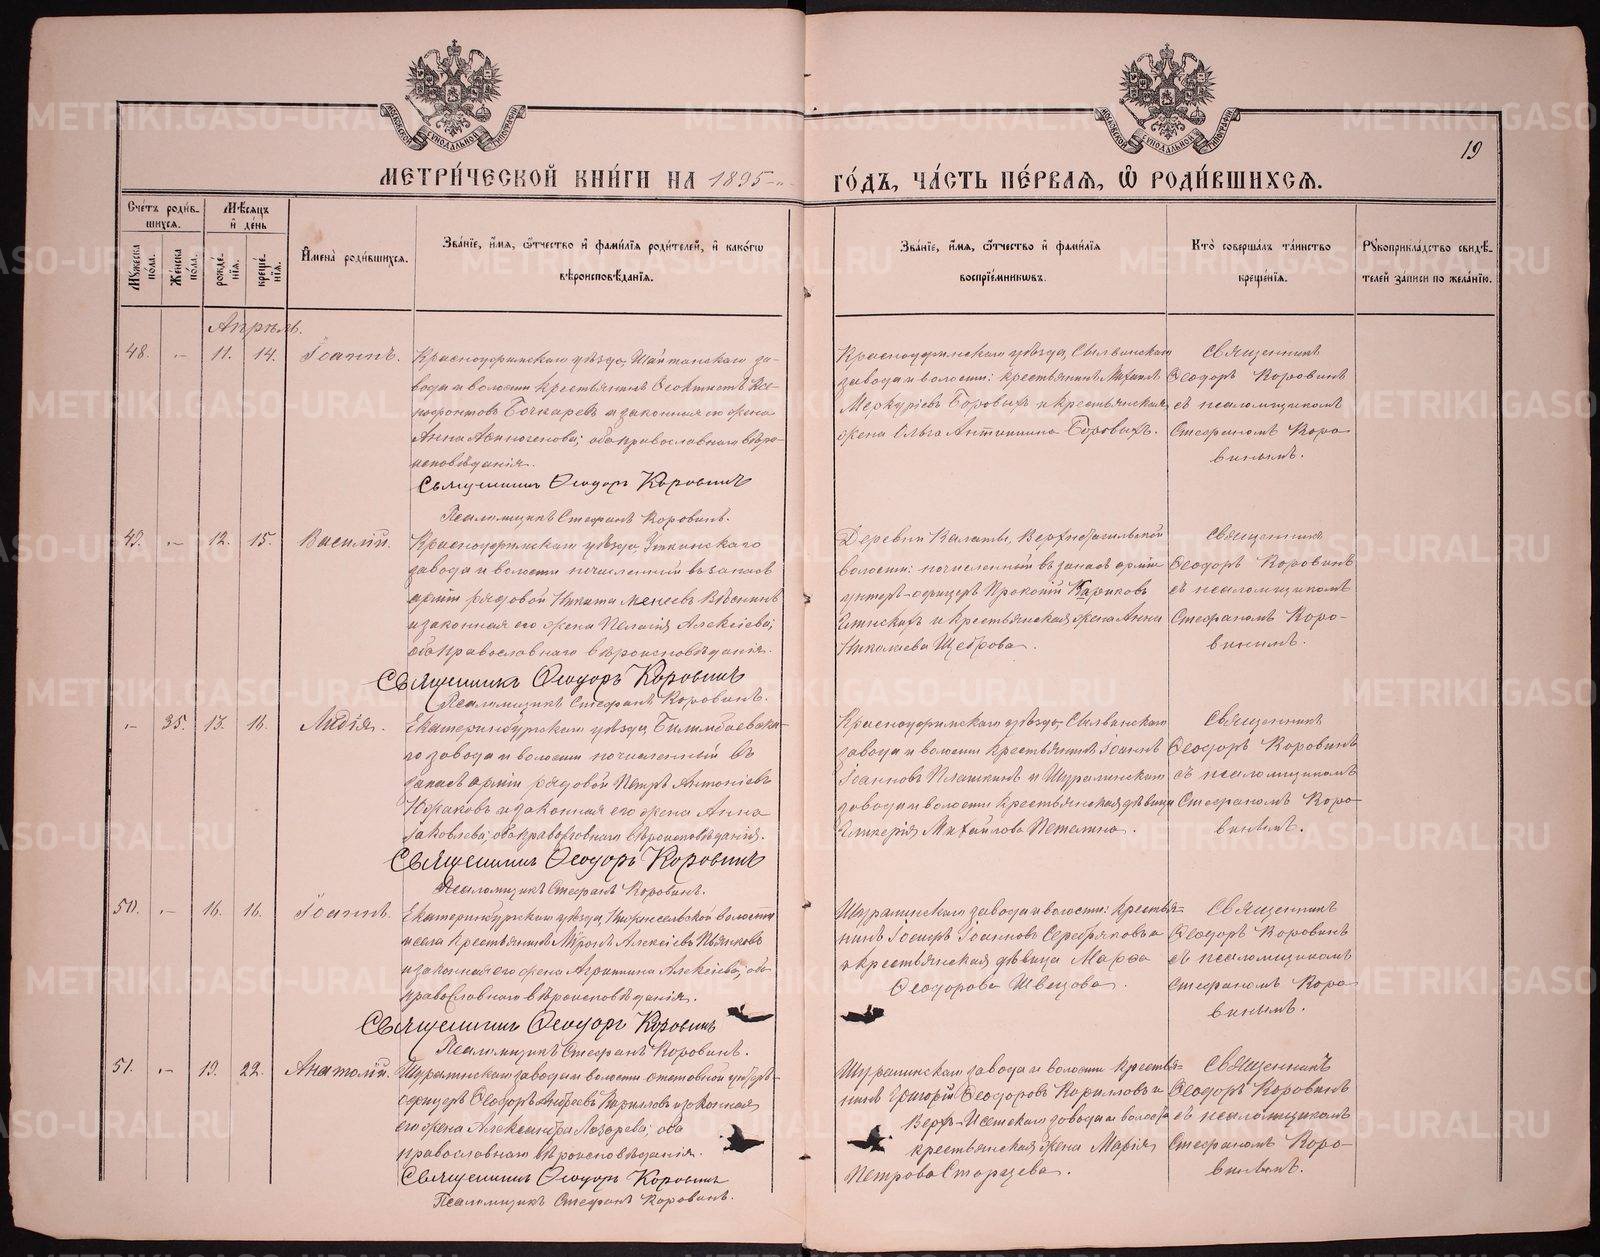 МОСКОВСКОЙ СѴНОДАЛЬНОЙ ТИПОГРАФІИ
МОСКОВСКОЙ СѴНОДАЛЬНОЙ ТИПОГРАФІИ
19
МЕТРИ́ЧЕСКОЙ КНИ́ГИ НА 1895 ГО́ДЪ, ЧА́СТЬ ПЕ́РВАѦ, Ѡ РОДИ́ВШИХСѦ.
Сче́тъ роди́в-
шихсѧ.
Мꙋжеска по́ла.
Же́нска по́ла.
Мѣ́сѧцъ и҆ де́нь
рожде́-
нїѧ.
креще́-
нїѧ.
И҆мена̀ роди́вшихсѧ.
Зва́нїе, и҆́мѧ, ѻ҆́тчество и҆ фами́лїѧ роди́телей, и҆ како́гѡ
вѣроисповѣ́данїѧ.
Зва́нїе, и҆́мѧ, ѻ҆́тчество и҆ фами́лїѧ
воспрїе́мникѡвъ.
Кто̀ соверша́лъ та́инство
креще́нїѧ.
Рꙋкоприкла́дство свидѣ́-
телей за́писи по жела́нїю.
Апрѣль.
48. - 11. 14. Іоаннъ.
Красноуфимскаго уѣзда, Шайтанскаго за-
вода и волости крестьянинъ Ѳеоктистъ Ксе-
нофонтовъ Бочкаревъ и законная его жена
Анна Авиногенова; оба православнаго вѣро-
исповѣданія.
Священникъ Ѳеодоръ Коровинъ
Псаломщикъ Стефанъ Коровинъ.
Красноуфимскаго уѣзда, Сылвинскаго
завода и волости: крестьянинъ Михаилъ
Меркуріевъ Боровыхъ и крестьянская
жена Ольга Антипина Боровыхъ.
Священникъ
Ѳеодоръ Коровинъ
съ псаломщикомъ
Стефаномъ Коро-
винымъ.
49. - 12. 15. Василій.
Красноуфимскаго уѣзда, Уткинскаго
завода и волости исчисленный въ запасъ
арміи рядовой Никита Вяснинъ
и законная его жена Пелагія Алексіева;
оба православнаго вѣроисповѣданія.
Священникъ Ѳеодоръ Коровинъ
Псаломщикъ Стефанъ Коровинъ.
Деревни Калаты,
волости: исчисленный въ запасъ арміи
унтеръ-офицеръ Прокопій
и крестьянская жена Анна
Николаева Щеброва.
Священникъ
Ѳеодоръ Коровинъ
съ псаломщикомъ
Стефаномъ Коро-
винымъ.
- 35. 13. 16. Лидія.
Екатеринбургскаго уѣзда, Билимбаевска-
го завода и волости исчисленный въ
запасъ арміи рядовой Петръ Антоніевъ
и законная его жена Анна
Іаковлева; оба православнаго вѣроисповѣданія.
Священникъ Ѳеодоръ Коровинъ
Псаломщикъ Стефанъ Коровинъ.
Красноуфимскаго уѣзда, Сылвинскаго
завода и волости крестьянинъ Іоаннъ
Іоанновъ Плашкинъ и Шуралинскаго
завода и волости крестьянская дѣвица
Гликерія Михайлова Петелина.
Священникъ
Ѳеодоръ Коровинъ
съ псаломщикомъ
Стефаномъ Коро-
винымъ.
50. - 16. 16. Іоаннъ.
Екатеринбургскаго уѣзда, волости
и села крестьянинъ Мѵронъ Алексіевъ Пьянковъ
и законная его жена Агриппина Алексіева, оба
православнаго вѣроисповѣданія.
Священникъ Ѳеодоръ Коровинъ
Псаломщикъ Стефанъ Коровинъ.
Шуралинскаго завода и волости: крестья-
нинъ Іосифъ Іоанновъ Серебряковъ
и крестьянская дѣвица Марѳа
Ѳеодорова Швецова.
Священникъ
Ѳеодоръ Коровинъ
съ псаломщикомъ
Стефаномъ Коро-
винымъ.
51. - 19. 22. Анатолій.
Шуралинскаго завода и волости отставной унтеръ-
офицеръ Ѳеодоръ Андреевъ Кирилловъ и законная
его жена Александра Лазарева; оба
православнаго вѣроисповѣданія.
Священникъ Ѳеодоръ Коровинъ
Псаломщикъ Стефанъ Коровинъ.
Шуралинскаго завода и волости крестья-
нинъ Григорій Ѳеодоровъ Кирилловъ и
Верхъ-Исетскаго завода и волости
крестьянская жена Марія
Петрова Старцева.
Священникъ
Ѳеодоръ Коровинъ
съ псаломщикомъ
Стефаномъ Коро-
винымъ.
METRIKI.GASO-URAL.RU